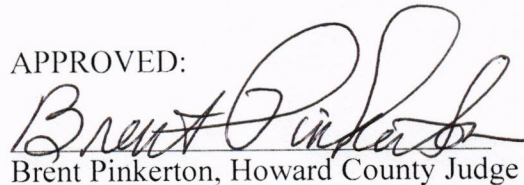 APPROVED:
Brent Pinkerton
Brent Pinkerton, Howard County Judge